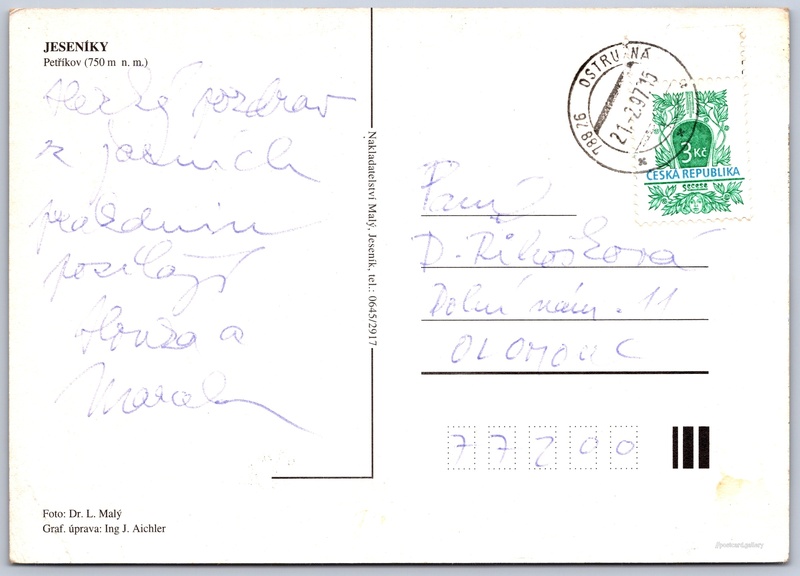 JESENÍKY
Petříkov (750 m n. m.)
Hezký pozdrav
z jarních
prázdnin
posílají
Honza a
Nakladatelství Malý, Jeseník, tel.: 0645/2917
78826 OSTRUŽNÁ
21.-2.97.15
3 Kč
ČESKÁ REPUBLIKA
secese
Paní
D. Rikošková
Dolní nám. 11
OLOMOUC
77200
Foto: Dr. L. Malý
Graf. úprava: Ing J. Aichler
//postcard.gallery